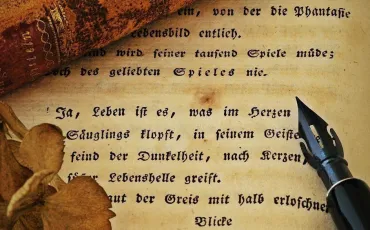 ein, von der die Phantasie
Lebensbild entlieh.
und wird seiner tausend Spiele müde;
doch des geliebten Spieles nie.
Ja, Leben ist es, was im Herzen
Säuglings klopft, in seinem Geiste
feind der Dunkelheit, nach Kerzen,
Lebenshelle greift.
der Greis mit halb erloschnem
Blicke